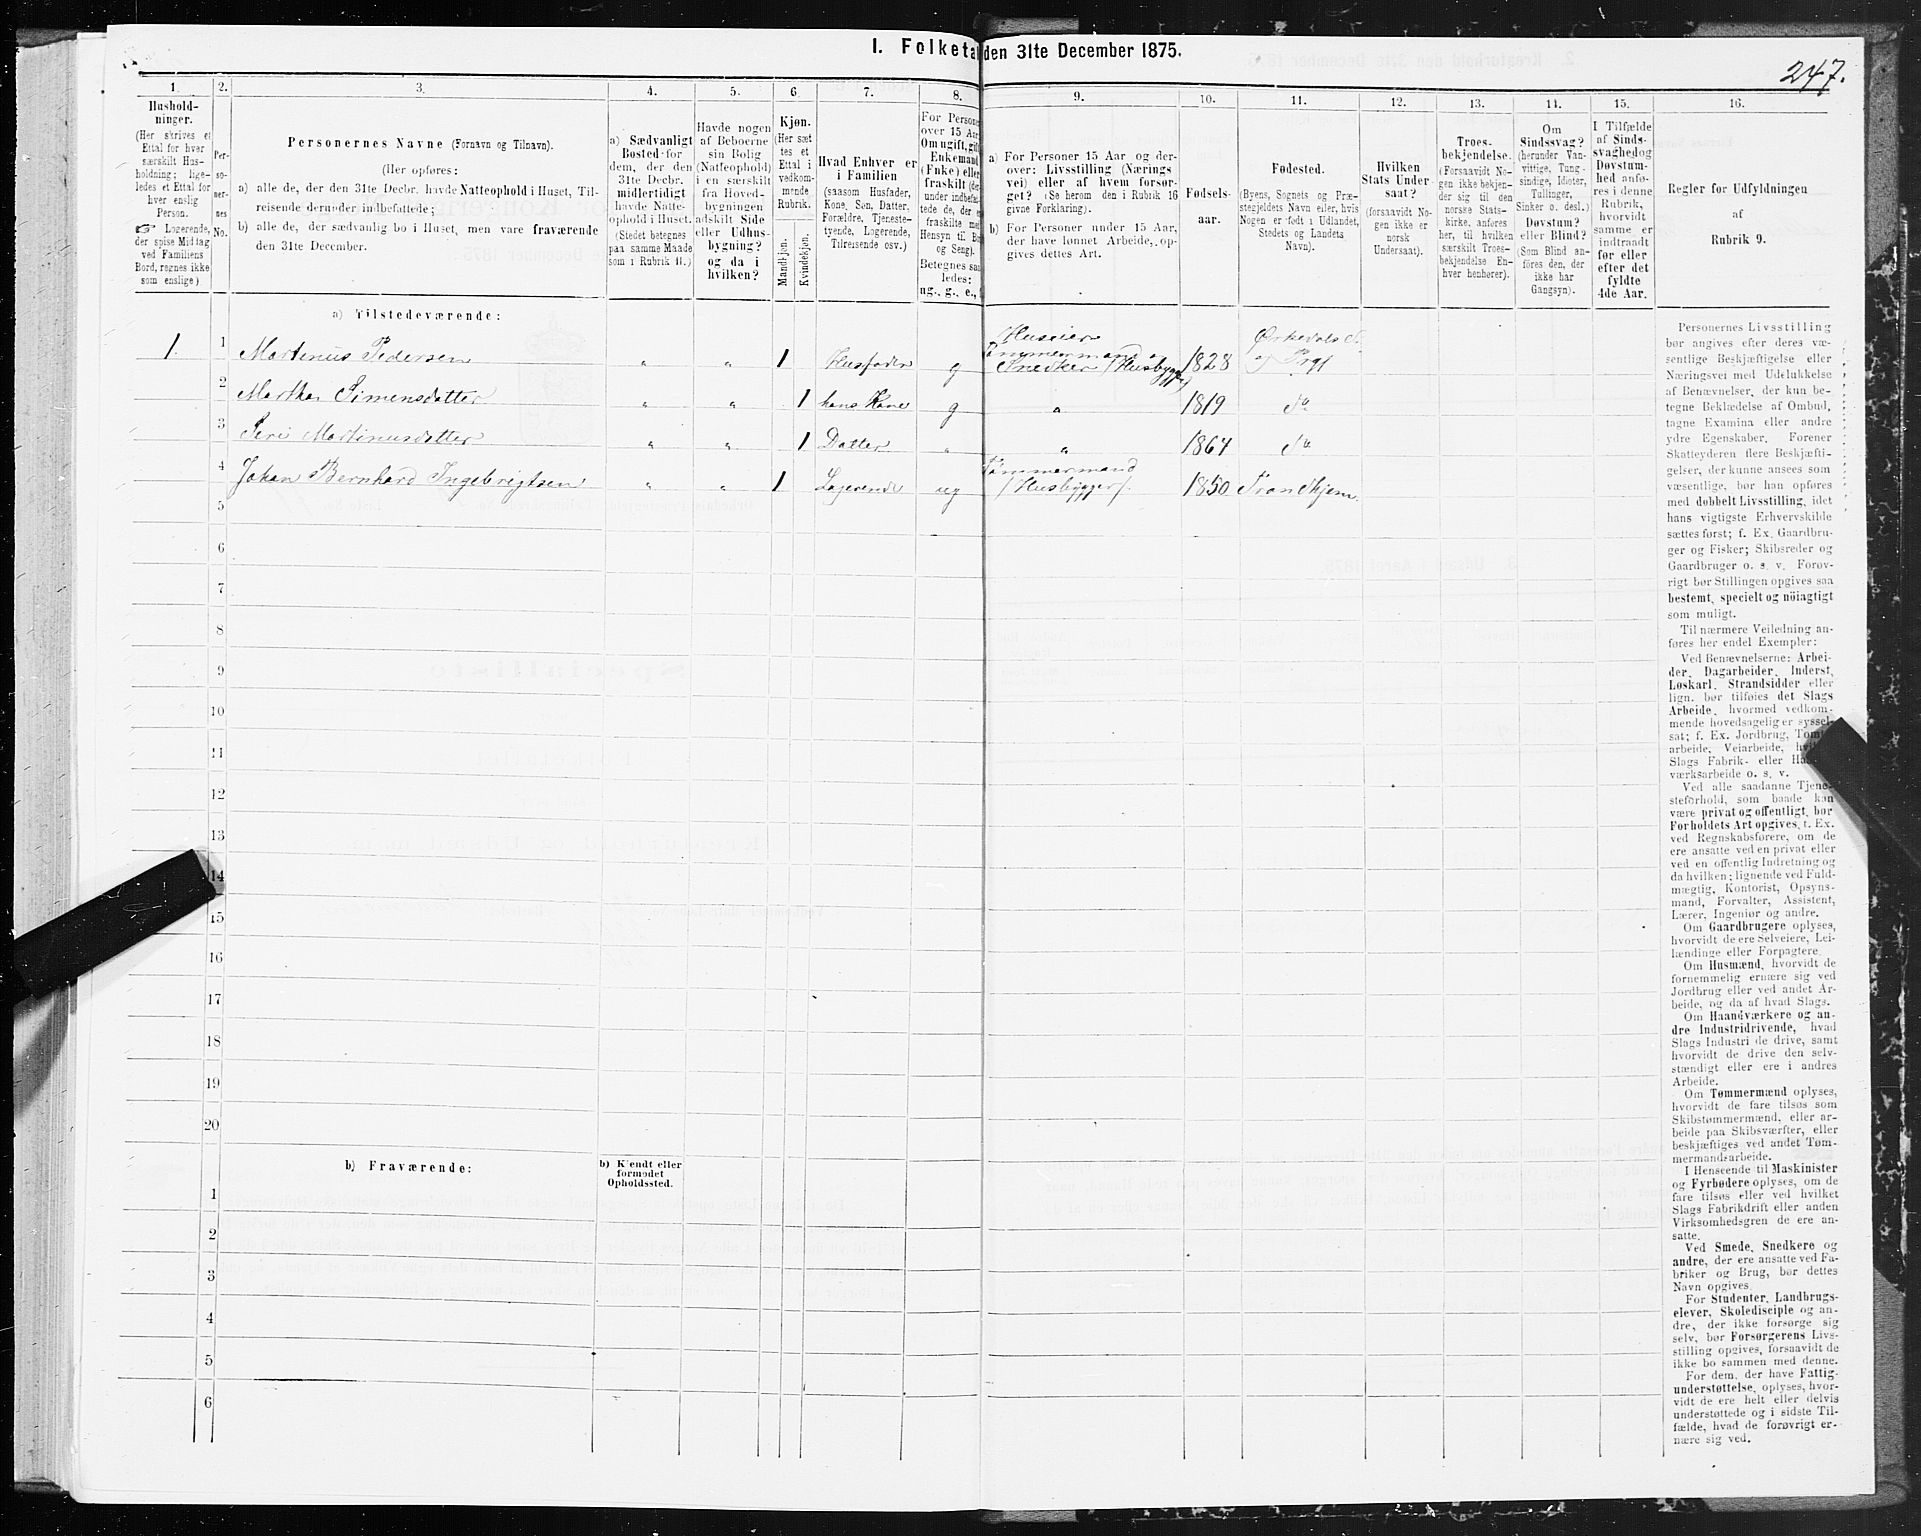 I. Folketal den 31te December 1875.
247.
1.
2.
3.
4.
5.
6.
7.
8.
9.
10.
11.
12.
13.
14.
15.
16.
Hushold-
ninger.
(Her skrives et
Ettal for hver
særskilt Hus-
holdning; lige-
ledes et Ettal for
hver enslig
Person.
☞ Logerende,
der spise Middag
ved Familiens
Bord, regnes ikke
som enslige)
Per-
so-
ner-
nes
No.
Personernes Navne (Fornavn og Tilnavn).
(Her opføres:
a) alle de, der den 31te Decbr. havde Natteophold i Huset, Til-
reisende derunder indbefattede;
b) alle de, der sædvanlig bo i Huset, men vare fraværende
den 31te December.
a) Sædvanligt
Bosted for
dem, der den
31te Decbr.
midlertidigt
havde Natte-
ophold i Huset.
(Stedet betegnes
paa samme Maade
som i Rubrik 11.)
Havde nogen
af Beboerne
sin Bolig
(Natteophold)
i en særskilt
fra Hoved-
bygningen
adskilt Side
eller Udhus-
bygning?
og da i
hvilken?
Kjøn.
(Her sæt-
tes et
Ettal i
vedkom-
mende
Rubrik.
Mandkjøn.
Kvindekjøn.
Hvad Enhver er
i Familien
(saasom Husfader,
Kone, Søn, Datter,
Forældre, Tjeneste-
tyende, Logerende,
Tilreisende osv.)
For Persone
over 15 Aar
Om ugift, gift
Enkemand
(Enke) eller
fraskilt (der-
under indbefat-
tede de, der e
fraskilte med
Hensyn til Bo
og Seng).
Betegnes saa-
ledes:
ug., g., e.,
a) For Personer 15 Aar og der-
over: Livsstilling (Nærings
vei) eller af hvem forsør-
get? (Se herom den i Rubrik 16
givne Forklaring).
b) For Personer under 15 Aar,
der have lønnet Arbeide, op-
gives dettes Art.
Fødsels-
aar.
Fødested.
(Byens, Sognets og Præ-
stegjeldets Navn eller, hvis
Nogen er født i Udlandet,
Stedets og Landets
Navn).
Hvilken
Stats Under
saat?
(forsaavidt No-
gen ikke er
norsk
Undersaat).
Troes-
bekjendelse.
(Forsaavidt No-
gen ikke bekjen-
der sig til den
norske Stats-
kirke, anføres
her, til hvilken
særskilt Troes-
bekjendelse En-
hver henhører).
Om
Sindssvag?
(herunder Van-
vittige, Tung-
sindige, Idioter,
Tullinger,
Sinker o. desl.)
Døvstum?
eller Blind?
(Som Blind an-
føres den, der
ikke har
Gangsyn).
I Tilfælde
af Sinds-
svaghed og
Døvstum-
hed anfø-
res i denne
Rubrik,
hvorvidt
samme er
indtraadt
før eller
efter det
fyldte
4de Aar.
Regler for Udfyldningen
af
Rubrik 9.
a) Tilstedeværende:
1 1 Martinus Pedersen " " 1 Husfader g Huseier Tømmermand & Snedker (Husbygger) 1828 Ørkedals S. og Prgj
2 Martha Simensdatter " " 1 hans Kone g " 1819 do
3 Seri Martinusdatter " " 1 Datter " " 1864 do
4 Johan Bernhard Ingebrigtsen " " 1 Logerende ug Tømmermand (Husbygger). 1850 Trondhjem
5
6
7
8
9
10
11
12
13
14
15
16
17
18
19
20
b) Fraværende:
b) Kjendt eller
formodet
Opholdssted.
1
2
3
4
5
6
Personernes Livsstilling
bør angives efter deres væ-
sentlige Beskjæftigelse eller
Næringsvei med Udelukkelse
af Benævnelser, der kun be-
tegne Beklædelse af Ombud,
tagne Examina eller andre
ydre Egenskaber. Forener
Skatteyderen flere Beskjæfti-
gelser, der kunne ansees som
væsentlige, bør han opføres
med dobbelt Livsstilling, idet
hans vigtigste Erhvervskilde
sættes først; f. Ex. Gaardbru-
ger og Fisker; Skibsreder og
Gaardbruger o. s. v. Forøv-
rigt bør Stillingen opgives saa
bestemt, specielt og nöiagtigt
som muligt.
Til nærmere Veiledning an-
føres her endel Exempler:
Ved Benævnelserne: Arbei-
der, Dagarbeider, Inderst,
Løskarl, Strandsidder eller
lign. bør tilføies det Slags
Arbeide, hvormed vedkom-
mende hovedsagelig er syssel-
sat; f. Ex. Jordbrug, Tomt-
arbeide, Veiarbeide, hvilket
Slags Fabrik- eller Haand-
værksarbeide o. s. v.
Ved alle saadanne Tjene-
steforhold, som baade kan
være privat og offentligt, bør
Forholdets Art opgives, t. Ex.
ved Regnskabsførere, om de
ere ansatte ved en privat eller
ved en offentlig Indretning og
da hvilken; lignende ved Fuld-
mægtig, Kontorist, Opsyns-
mand, Forvalter, Assistent,
Lærer, Ingeniør og andre.
Om Gaardbrugere oplyses,
hvorvidt de ere Selveiere, Lei-
lændinge eller Forpagtere.
Om Husmænd, hvorvidt de
fornemmelig ernære sig ved
Jordbrug eller ved andet Ar-
beide, og da af hvad Slags.
Om Haandværkere og an-
dre Industridrivende, hvad
Slags Industri de drive, samt
hvorvidt de drive den selv-
stændigt eller ere i andres
Arbeide.
Om Tømmermænd oplyses,
hvorvidt de fare tilsøs som
Skibstømmermænd, eller ar-
beide paa Skibsværfter, eller
beskjæftiges ved andet Tøm-
mermandsarbeide.
I Henseende til Maskinister
og Fyrbødere oplyses, om de
fare tilsøs eller ved hvilket
Slags Fabrikdrift eller anden
Virksomhedsgren de ere an-
satte.
Ved Smede, Snedkere og
andre, der ere ansatte ved Fa-
briker og Brug, bør dettes
Navn opgives
For Studenter, Landbrugs-
elever, Skoledisciple og an-
dre, der ikke forsørge sig
selv, bør Forsørgerens Livs-
stilling opgives, forsaavidt de
ikke bo sammen med denne.
For dem, der have Fattig-
understøttelse, oplyses, hvor-
vidt de ere helt eller delvis
understøttede og i sidste Til-
fælde, hvad de forøvrigt er-
nære sig ved.